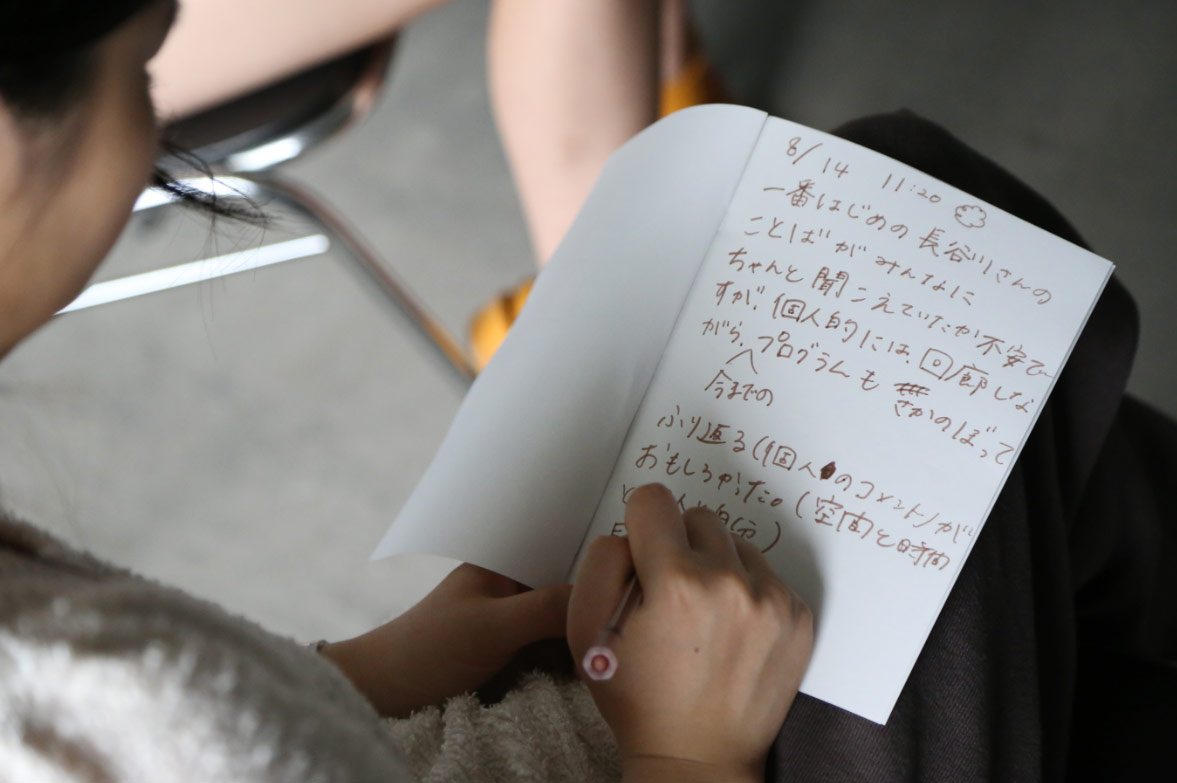 8/14 11:20
一番はじめの長谷川さんの
ことばがみんなに
ちゃんと聞こえていたか不安で
すが、個人的には回廊しな
がら、プログラムも さかのぼって
今までの
ふり返る(個人のコメント)が
おもしろかった。(空間と時間
と 人と自分)